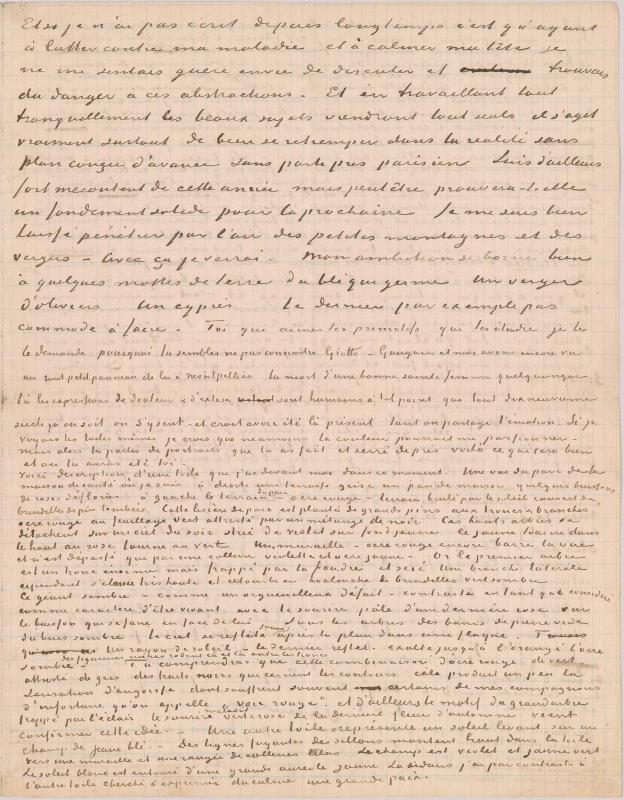 Et si je n'ai pas écrit depuis longtemps c'est qu'ayant
à lutter contre ma maladie et à calmer ma tête je
ne me sentais guère envie de discuter et trouvais
du danger à ces abstractions. Et en travaillant tout
tranquillement les beaux sujets viendront tout seuls il s'agit
vraiment surtout de bien se retremper dans la realité sans
plan conçu d'avance sans parti pris parisien Suis d'ailleurs
fort mécontent de cette année mais peut être prouvera-t-elle
un fondement solide pour la prochaine Je me suis bien
laissé pénétrer par l'air des petites montagnes et des
vergers – avec ça je verrai. Mon ambition se borne bien
à quelques mottes de terre du blé qui germe Un verger
d'oliviers Un cyprès Le dernier par exemple pas
commode à faire. Toi qui aimes les primitifs qui les étudie je te
le demande pourquoi tu sembles ne pas connaître Giotto – Gauguin et moi avons encore vu
un tout petit panneau de lui à Montpellier la mort d'une bonne sainte femme quelconque
là les expressions de douleur & d'extase sont humains à tel point que tout dixneuvième
siècle qu'on soit on s'y sent – et croit avoir été là présent tant on partage l'émotion. Si je
voyais tes toiles mêmes je crois que néanmoins la couleur pourrait me passionner –
mais alors tu parles de portraits que tu as fait et serré de près voilà ce qui sera bien
et où tu auras été toi.
Voici description d'une toile que j'ai devant moi dans ce moment. Une vue du parc de la
maison de santé où je suis à droite une terrasse grise un pan de maison quelques buissons
de roses déflories à gauche le terrain du parc – ocre rouge – terrain brulé par le soleil couvert de
brindilles de pin tombées Cette lisière de parc est planté de grands pins aux troncs & branches
ocre rouge au feuillage vert attristé par un mélange de noir Ces hauts arbres se
détachent sur un ciel du soir strié de violet sur fond jaune le jaune tourne dans
le haut au rose tourne au vert Une muraille – ocre rouge encore barre la vue
et n'est dépassé que par une colline violette et ocre jaune – Or le premier arbre
est un tronc énorme mais frappé par la foudre et scié Une branche laterale
cependant s'élance très haute et retombe en avalanche de brindelles vert sombre
Ce géant sombre – comme un orgueilleux défait – contraste en tant que considéré
comme caractère d'être vivant avec le sourire pâle d'une dernière rose sur
le buisson qui se fane en face de lui Sous les arbres des bancs de pierre vide
du buis sombre le ciel se reflète jaune après la pluie dans une flaque.
Un rayon de soleil – le dernier reflet – exalte jusqu'à l'orangé l'ocre
sombre – des figurines noires rodent çà et là entre les troncs
Tu comprendras que cette combinaison d'ocre rouge de vert
attristé de gris des traits noirs qui cernent les contours cela produit un peu la
sensation d'angoisse dont souffrent souvent certains de mes compagnons
d'infortune qu'on appelle voir rouge. et d'ailleurs le motif du grand arbre
frappé par l'éclair le sourire maladif vert rose de la dernière fleur d'automne vient
confirmer cette idée – Une autre toile représente un soleil levant sur un
champ de jeune blé. Des lignes fuyantes des sillons montent haut dans la toile
vers une muraille et une rangée de collines lilas Le champ est violet et jaune vert
Le soleil blanc est entouré d'une grande auréole jaune Là dedans j'ai par contraste à
l'autre toile cherché à exprimer du calme une grande paix.